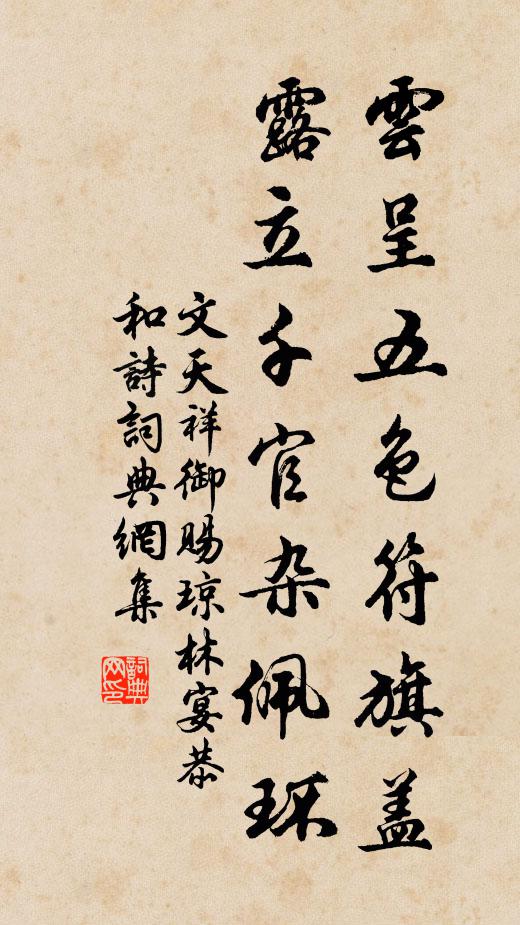 雲呈五色符旗盖
露立千官杂佩环
文天祥御賜琼林宴恭
和詩詞典網集
詞典网印